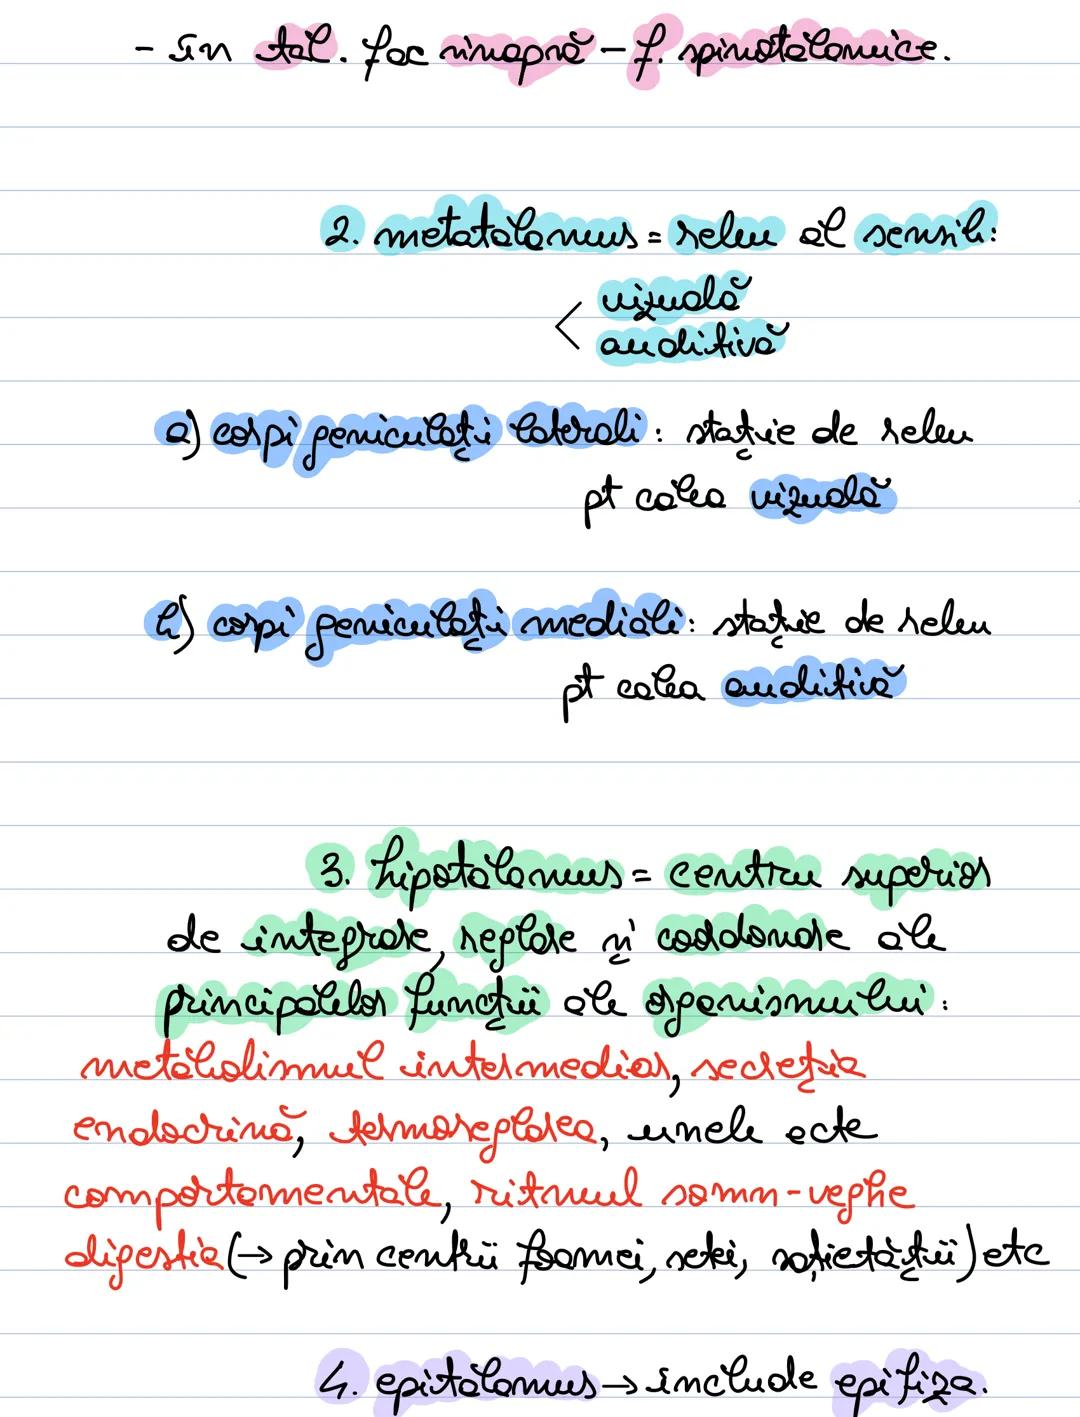 - în tal. fac sinapsă - f. spinotalamice.
2. metatalamus = releu al sensib:
< vizuală
auditivă
a) corpi geniculați laterali: stație de releu
pt calea vizuală
b) corpi geniculați mediali: stație de releu
pt calea auditivă
3. hipotalamus = centru superior
de integrare, reglare și coordonare ale
principalelor funcții ale organismului:
metabolismul intermediar, secreția
endocrină, termoreglarea, unele acte
comportamentale, ritmul somn-veghe
digestia (→ prin centrii foamei, setei, sațietății) etc
4. epitalamus → include epifiza.